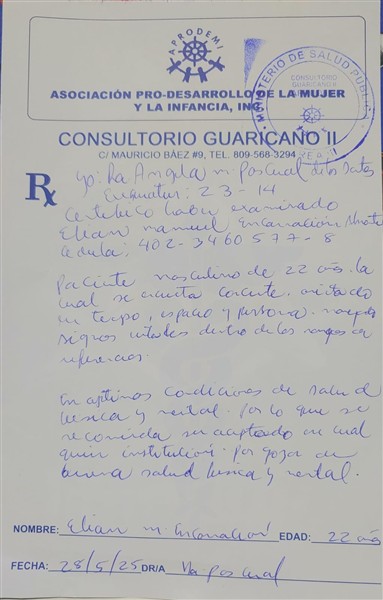 APRODEMI
ASOCIACIÓN PRO-DESARROLLO DE LA MUJER
Y LA INFANCIA, INC.
MINISTERIO DE SALUD PUBLICA
CONSULTORIO
GUARICANO
CONSULTORIO GUARICANO II
C/ MAURICIO BÁEZ #9, TEL. 809-568-3294
Rx
yo: Ra Angela m. Pascual de los Santos
Exequatur: 23-14
Certifico haber examinado
Elian manuel Encarnación
Cedula: 402-3460577-8
Paciente masculino de 22 años. la
cual se encuentra conciente, orientado
en tiempo, espacio y persona.
signos vitales dentro de los rangos de
referencias.
En optimas condiciones de salud
fisica y mental. Por lo que se
recomienda ser aceptado en cual
quier institución. Por gozar de
buena salud fisica y mental.
NOMBRE: Elian m. Encarnación EDAD: 22 años
FECHA: 28/5/25 DR/A Pascual